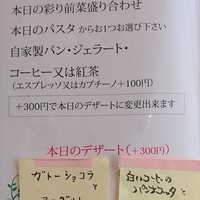 本日の彩り前菜盛り合わせ
本日のパスタ からお1つお選び下さい
自家製パン・ジェラート・
コーヒー又は紅茶
(エスプレッソ又はカプチーノ+100円)
+300円で本日のデザートに変更出来ます
本日のデザート(+300円)
ガトーショコラ
と
白いコーヒーの
パンナコッタ
と